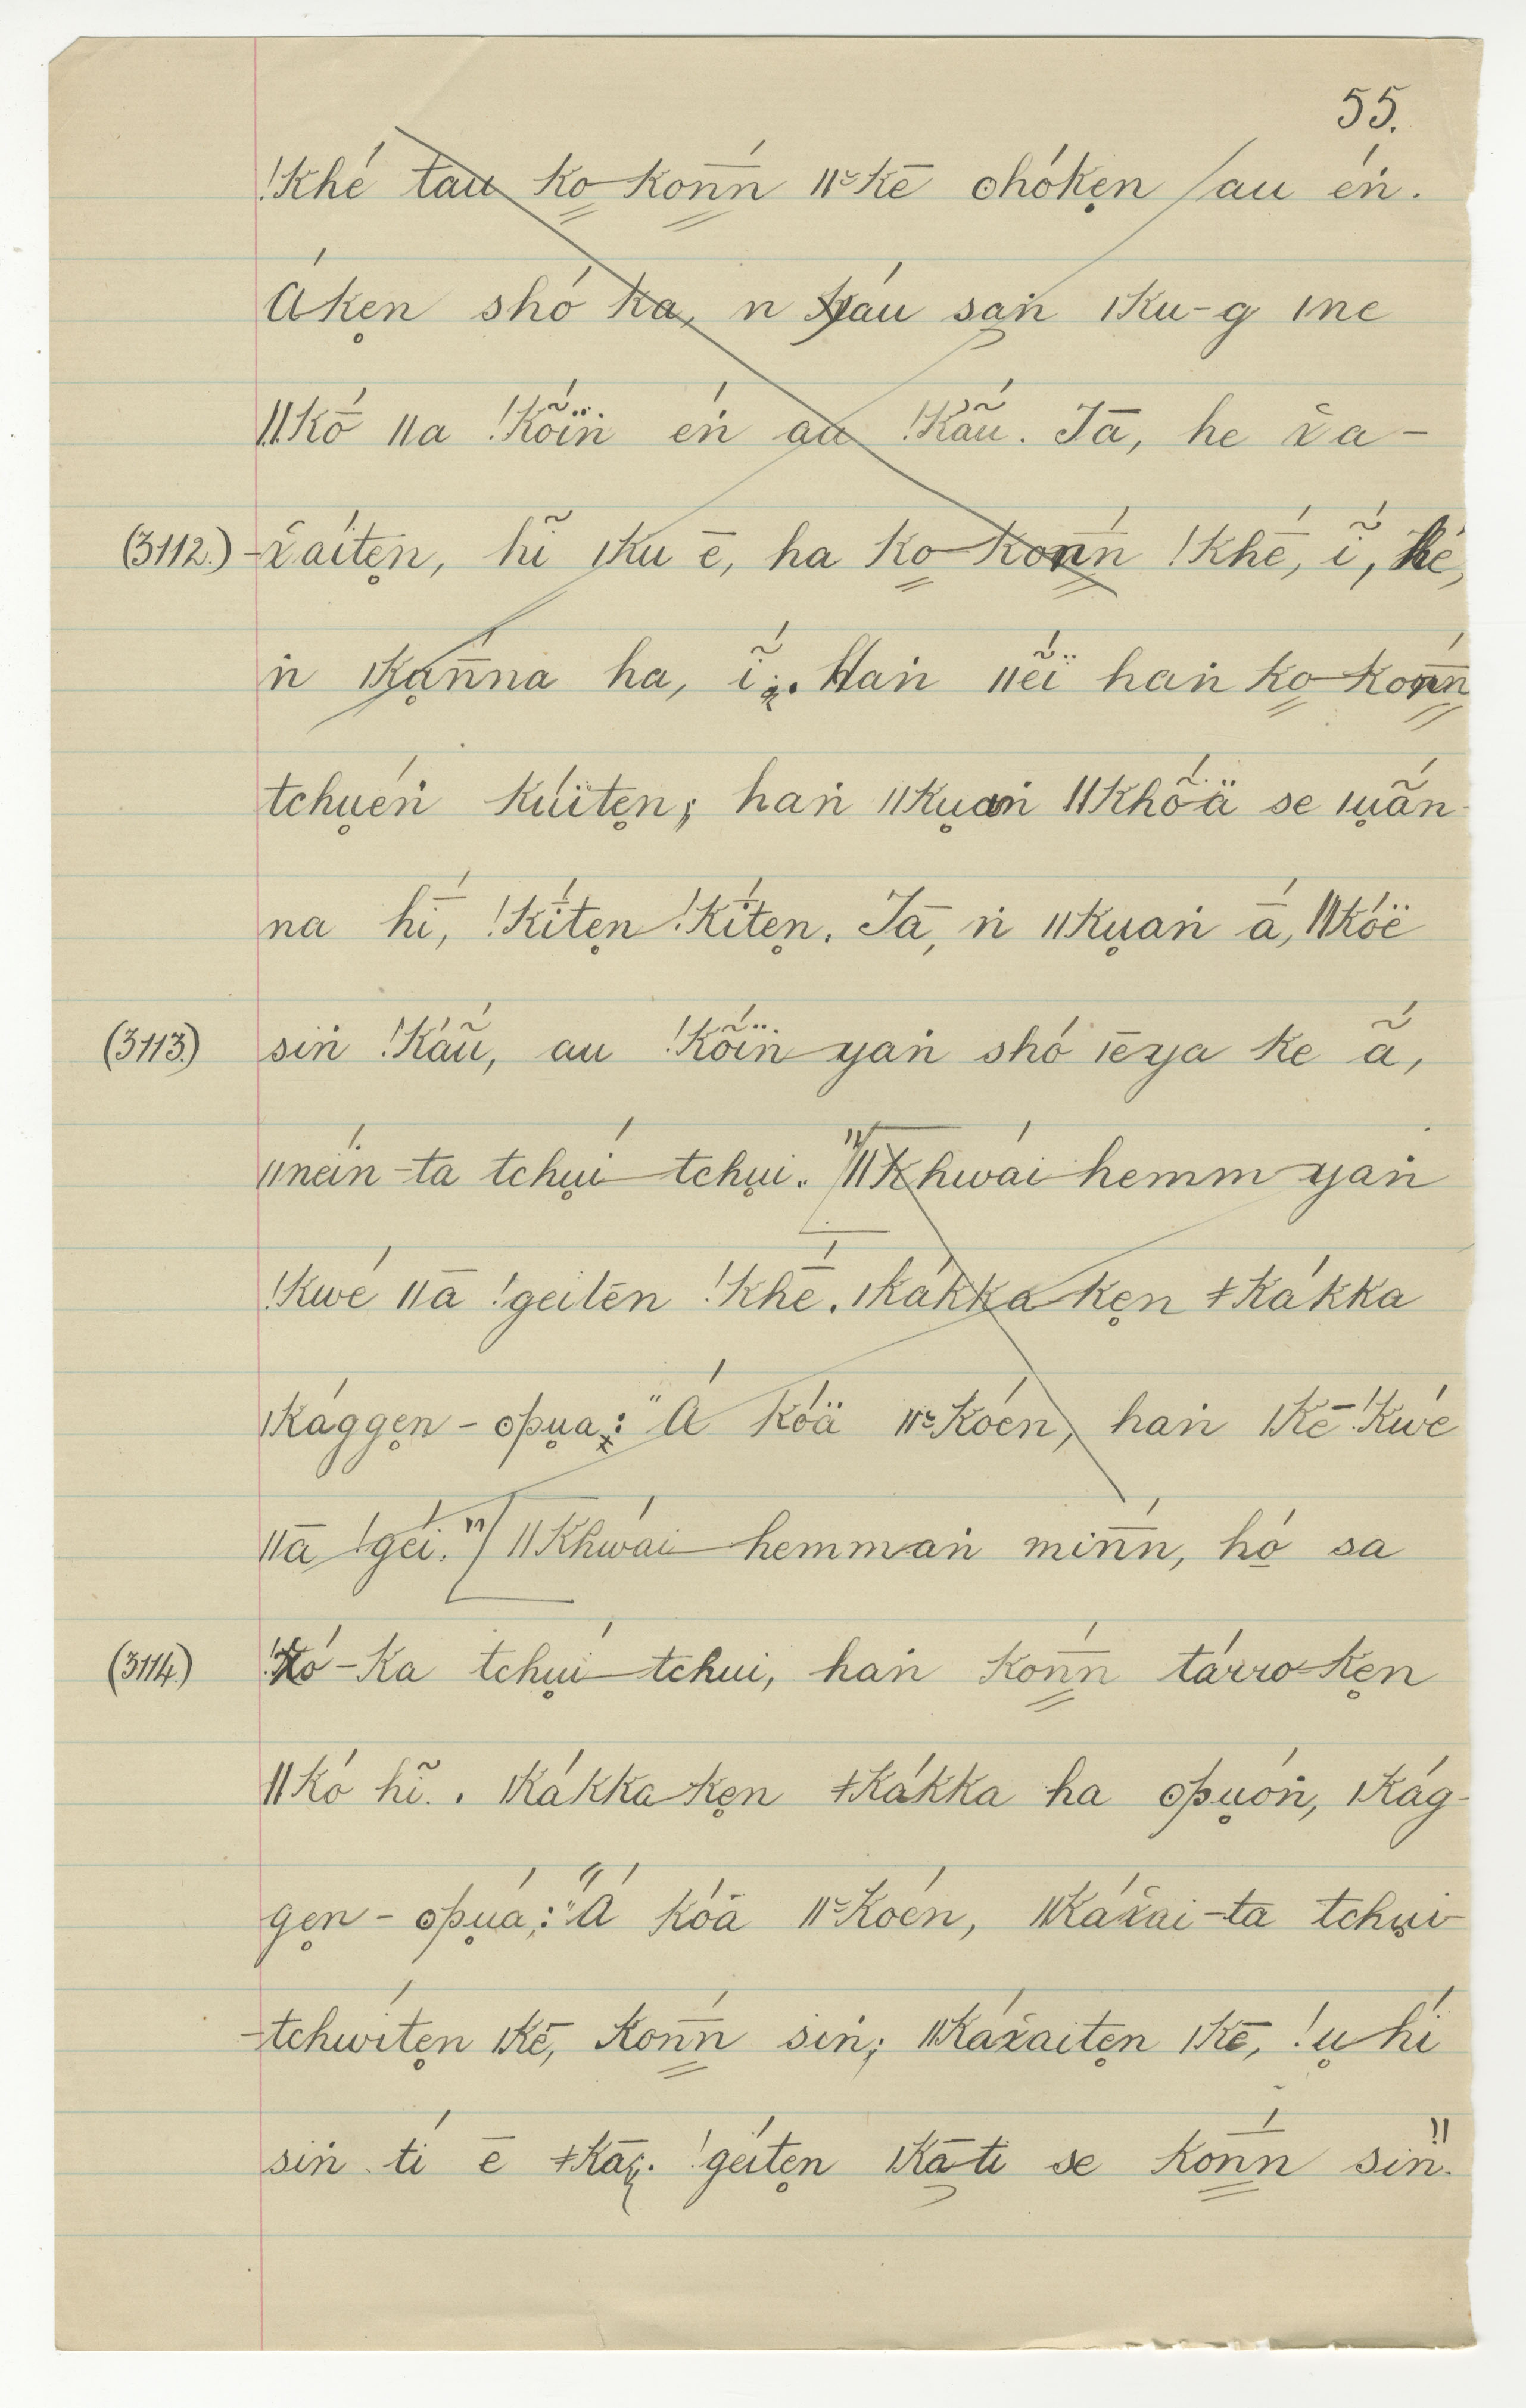 55.
!khé tau ko-konn̄́ ǁꜿkē ʘhókẹn /au éṅ.
Ákẹn shó ka, n ꭓáu saṅ ǀku-g ǀne
ǁkṓ ǁa !kṏ́iṅ éṅ au !kã́ũ. Tā, he x̌a-
(3112.) -x̌aítẹn, hĩ ǀku ē, ha ko-konn̄́ !khḗ, ĩ́, ké,
ṅ ǀkạn̄́na ha, ĩ́. Haṅ ǁẽ́ï haṅ ko-konn̄́
tchụéṅ kúïtẹn; haṅ ǁkụaṅ ǁkhṍä se ǀụã́n-
na hī́, !kī́tẹn-!kī́tẹn. Tā, ṅ ǁkụaṅ ā́, ǁkóë
siṅ !káũ, au !kṏ́iṅ yaṅ shó ǀēya ke ã́,
(3113.)
ǁneíṅ-ta tchụí-tchụi. "ǁkhwái-hemm yaṅ
!kwé ǁā !geitēn !khḗ. ǀkákka-kẹn ǂkákka
ǀkággẹn-ʘpụa: "Á kóä ǁꜿkóën, haṅ ǀkē-!kwé
ǁā !geí." ǁkhwái-hemmaṅ minn̄́, hó sa
(3114.) !kó-ka tchụí-tchui, haṅ konn̄́ tárro-kẹn
ǁkó hĩ. ǀkákka-kẹn ǂkákka ha ʘpụóṅ, ǀkág-
gẹn-ʘpụá: "Á kóä ǁꜿkoén, ǁkáx̌ai-ta tchụi-
-tchwítẹn ǀkē, konn̄́ siṅ; ǁkáx̌aitẹn ǀkē, !ụ-hí
siṅ tí ē ǂkā. !geítẹn ǀkā-ti se konn̄́ siṅ."